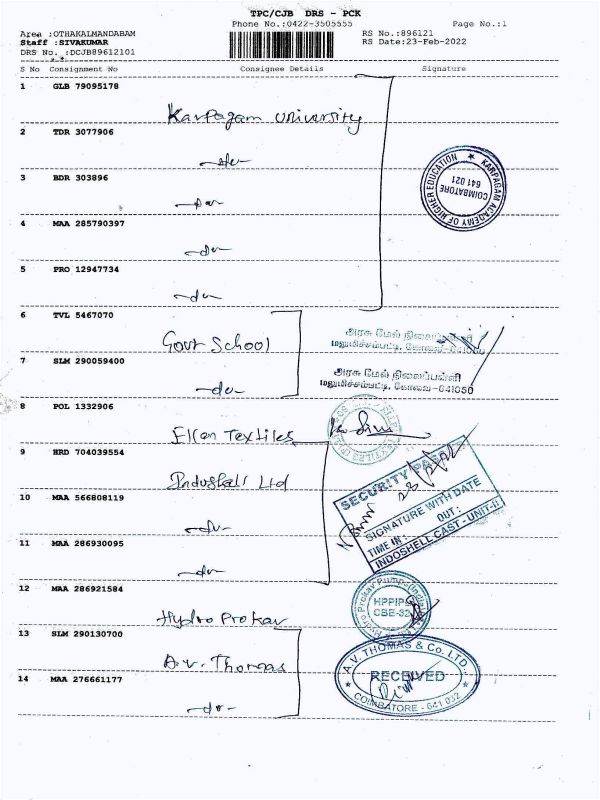 TPC/CJB DRS - PCK
Phone No.:0422-3505555
Page No.:1
Area :OTHAKALMANDABAM
RS No.:896121
Staff :SIVAKUMAR
RS Date:23-Feb-2022
DRS No. :DCJB89612101
S No Consignment No Consignee Details Signature
1 GLB 79095178
Karpagam University
2 TDR 3077906
-do-
3 BDR 303896
-do-
KARPAGAM ACADEMY OF HIGHER EDUCATION
COIMBATORE
641 021
4 MAA 285790397
-do-
5 PRO 12947734
-do-
6 TVL 5467070
Govt School
அரசு மேல் நிலைப்பள்ளி
மலுமிச்சம்பட்டி, கோவை-641050
7 SLM 290059400
-do-
அரசு மேல் நிலைப்பள்ளி
மலுமிச்சம்பட்டி, கோவை-641050
8 POL 1332906
Ellen Textiles
9 HRD 704039554
Indoshell Ltd
10 MAA 566808119
-do-
SECURITY
SIGNATURE WITH DATE
TIME IN: OUT:
INDOSHELL CAST - UNIT-II
11 MAA 286930095
-do-
12 MAA 286921584
Hydro Prokav
Hydro Prokav Pumps (India)
HPPIPL
CBE-32
13 SLM 290130700
A.V. Thomas
A.V. THOMAS & Co. LTD.,
RECEIVED
COIMBATORE - 641 032
14 MAA 276661177
-do-